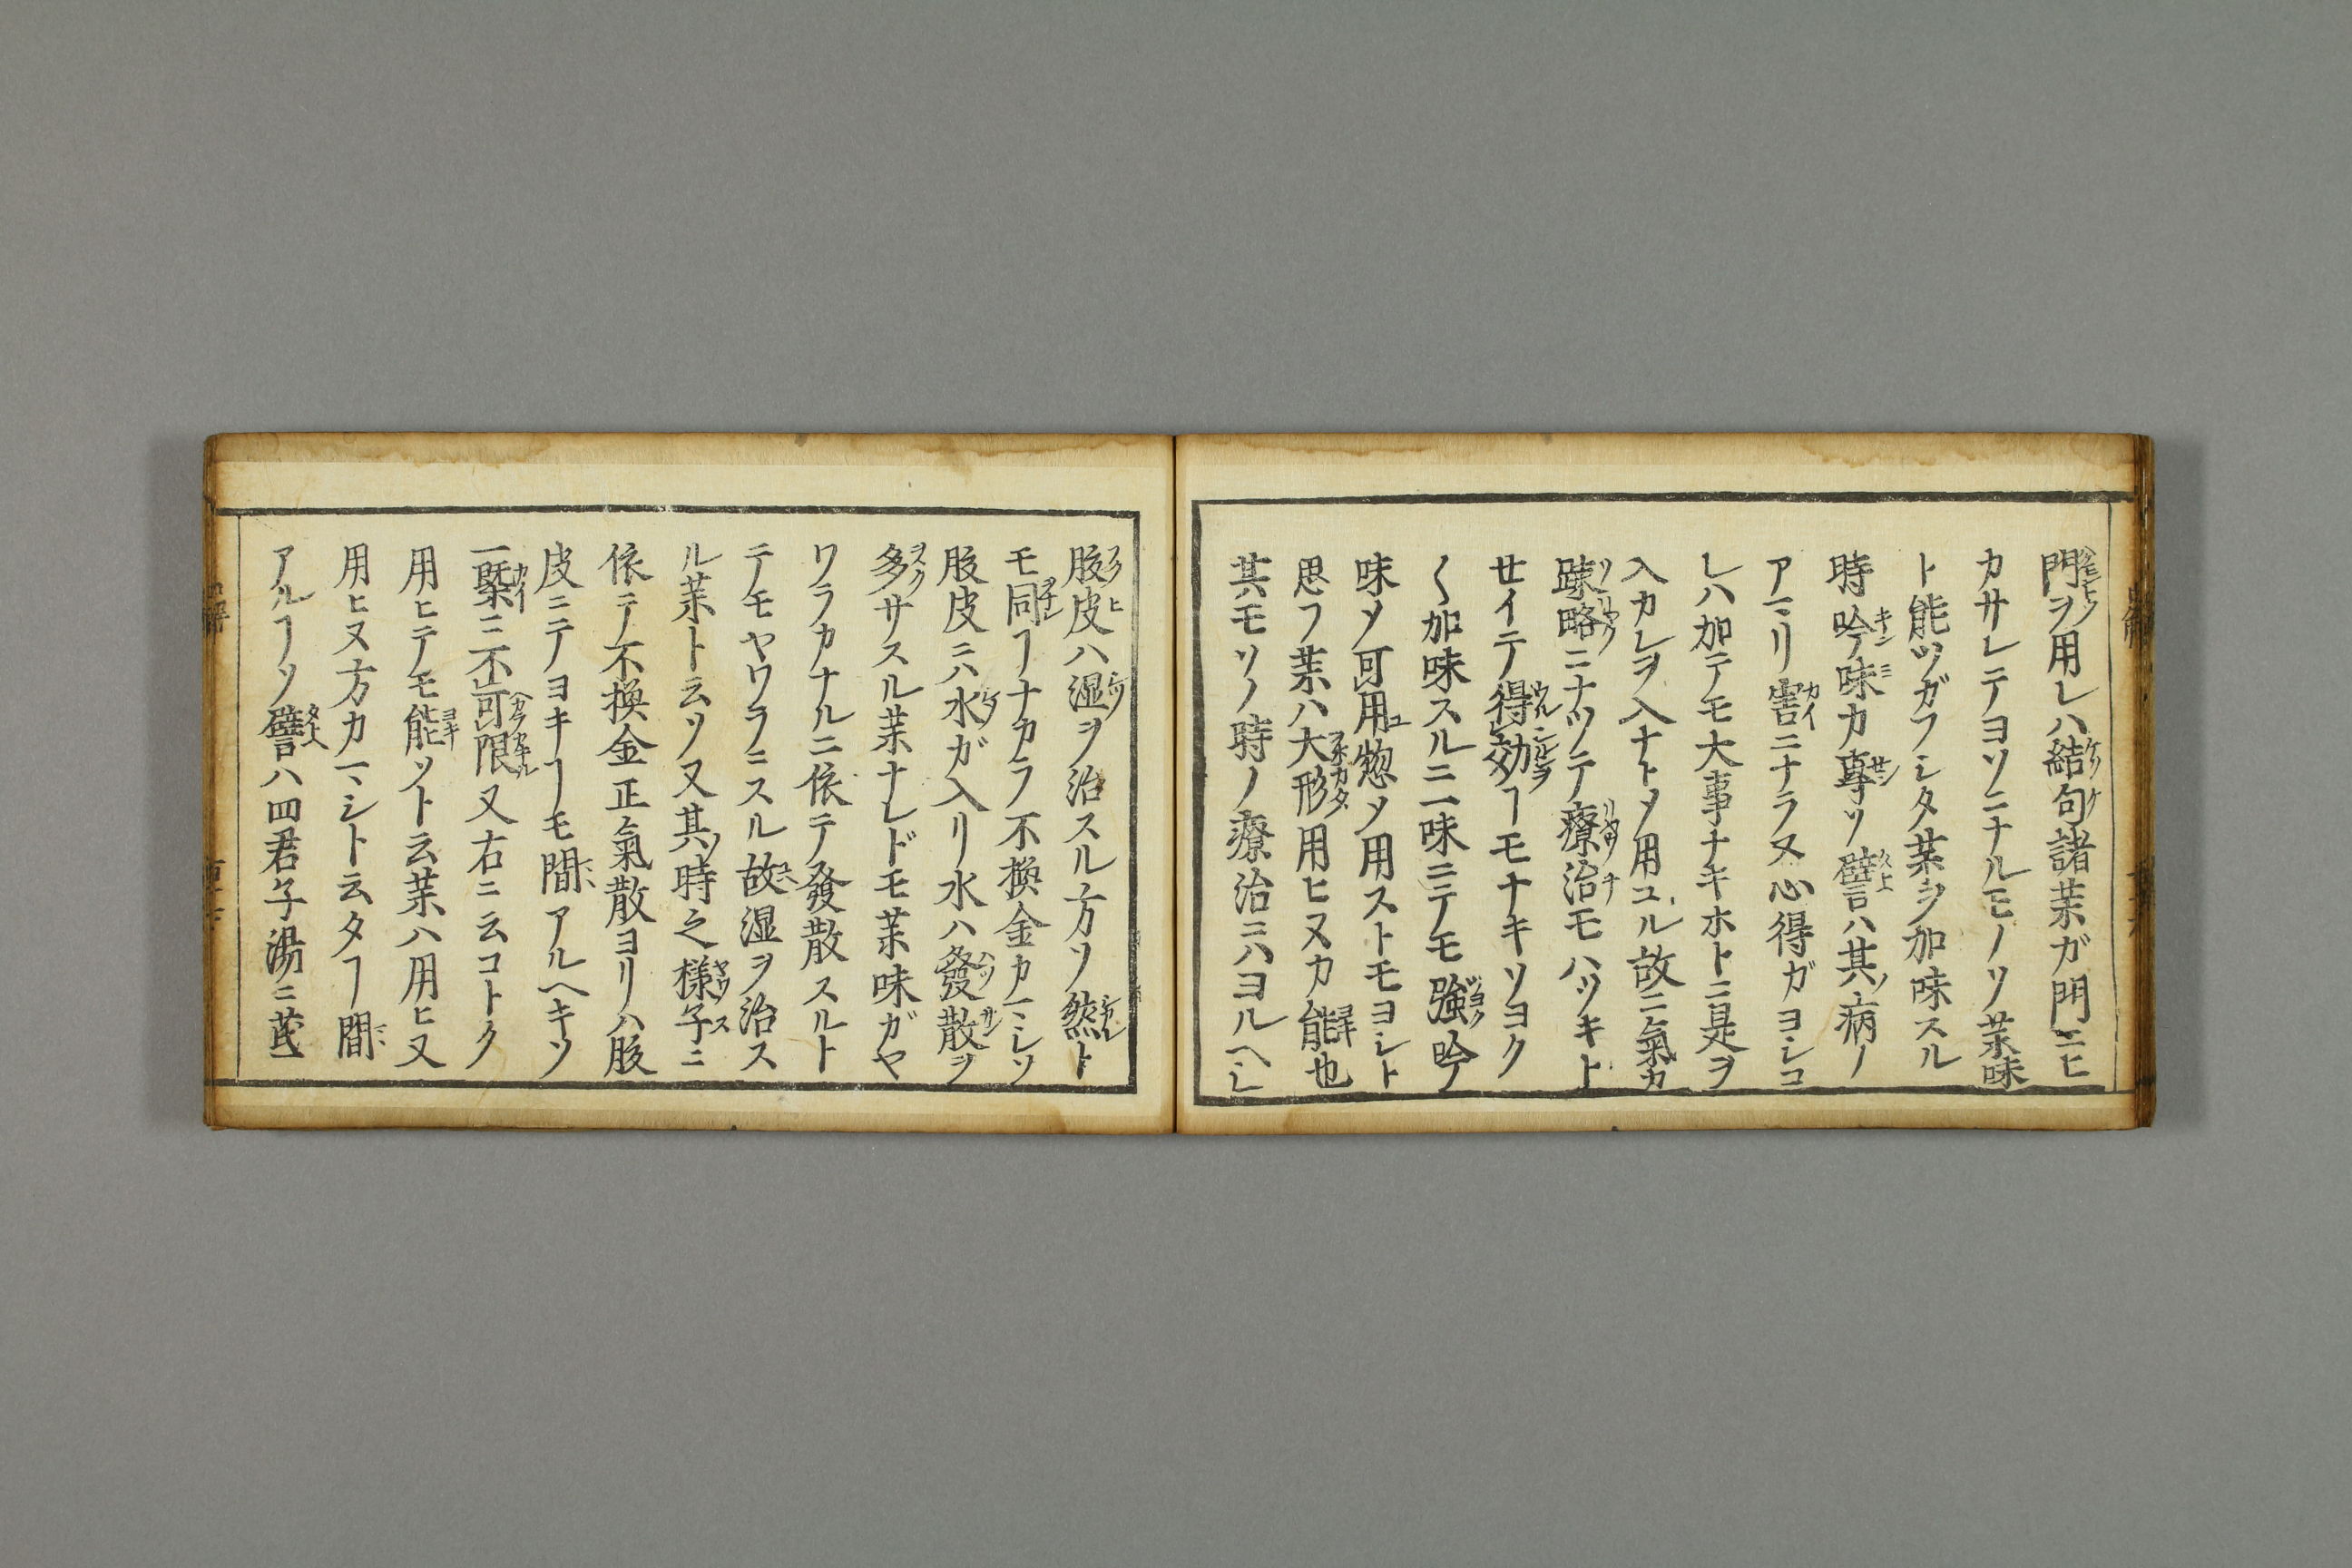 門ヲ用レハ結句諸薬ガ門ニヒ
カサレテヨソニナルモノソ薬味
ト能ツガフシタ薬ヲ加味スル
時吟味カ專ソ譬ハ其ノ病ノ
アマリ害ニナラヌ心得ガヨシコ
レハ加テモ大事ナキホトニ是ヲ
入カレヲ入ナトメ用ユル故ニ氣カ
踈略ニナツテ療治モハツキト
セイテ得効ヿモナキソヨク
〱加味スルニ一味ニテモ強吟
味メ可用惣メ用ストモヨシト
思フ薬ハ大形用ヒヌカ能也
其モソノ時ノ療治ニハヨルヘシ
股皮ハ湿ヲ治スル方ソ然ト
モ同ヿナカラ不換金カマシソ
股皮ニハ水ガ入リ水ハ發散ヲ
多サスル薬ナレドモ薬味ガヤ
ワラカナルニ依テ發散スルト
テモヤワラニスル故湿ヲ治ス
ル薬ト云ソ又其ノ時之樣子ニ
依テ不換金正氣散ヨリハ股
皮ニテヨキヿモ間アルヘキソ
一槩ニ不可限又右ニ云コトク
用ヒテモ能ソト云薬ハ用ヒヌ
用ヒヌ方カマシト云タヿ間
アルヿソ譬ハ四君子湯ニ茋